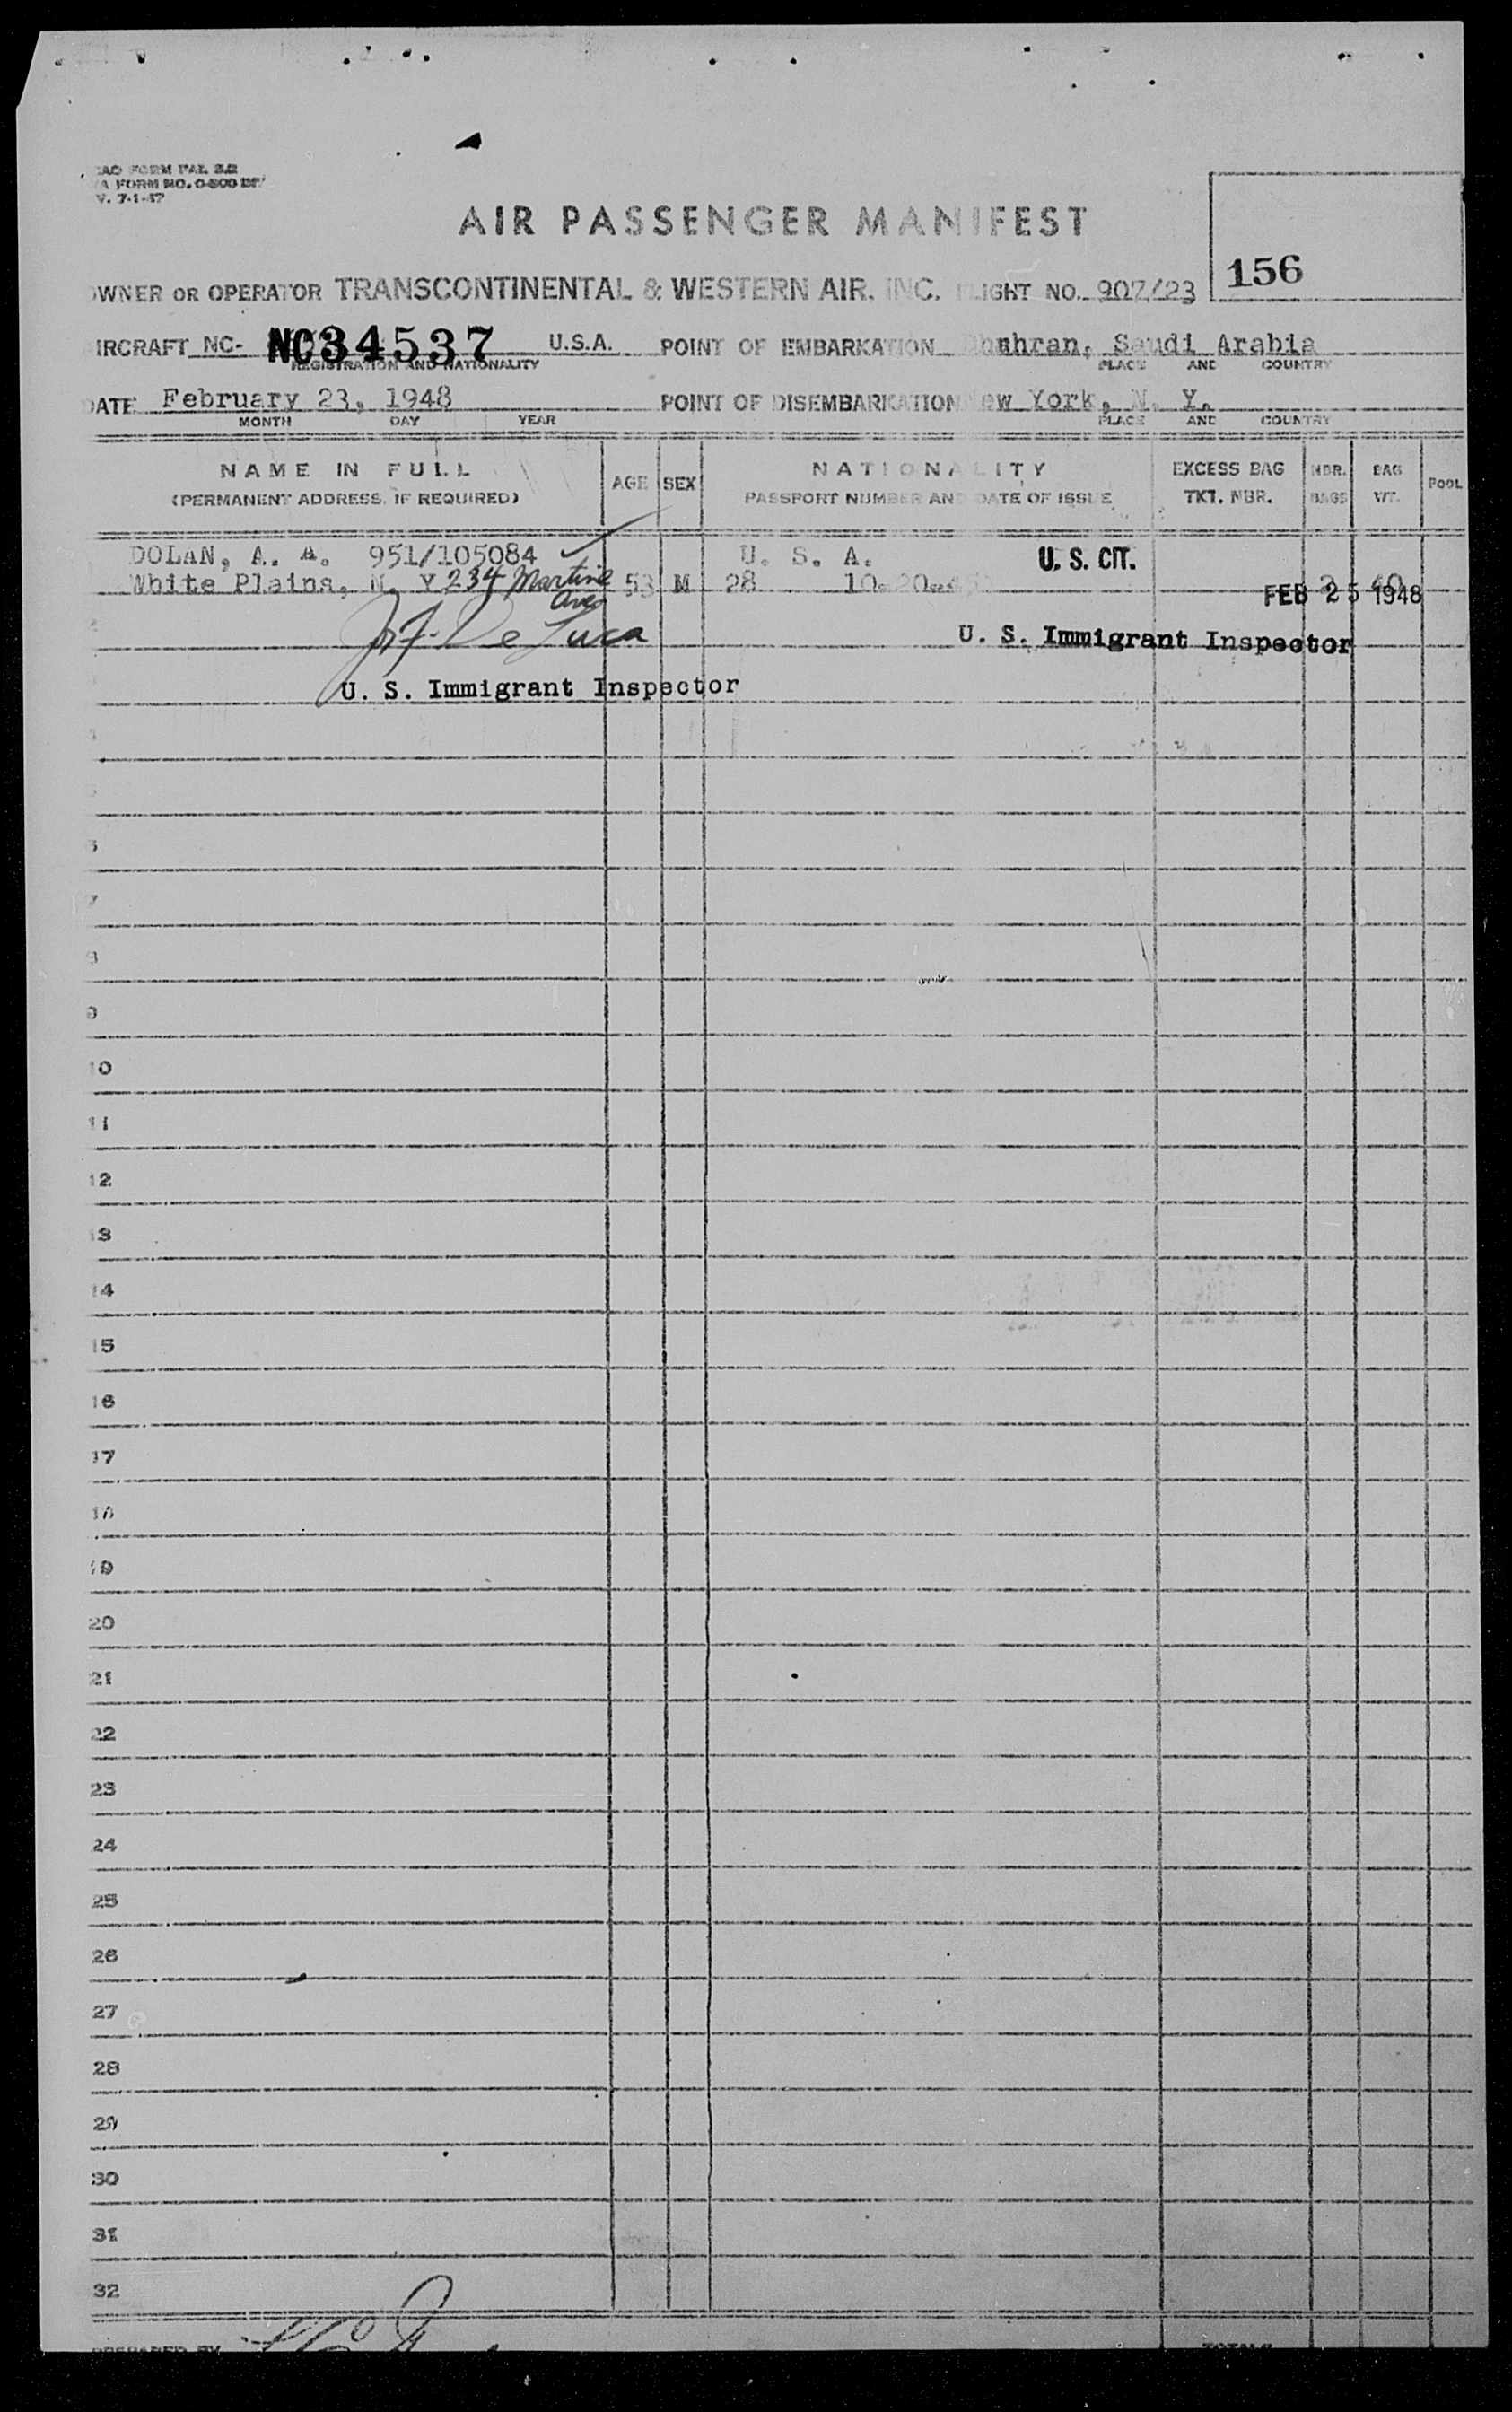 V. 7-1-47
AIR PASSENGER MANIFEST
156
OWNER OR OPERATOR TRANSCONTINENTAL & WESTERN AIR, INC. FLIGHT NO. 907/23
AIRCRAFT NC- NC34537 U.S.A. POINT OF EMBARKATION Dhahran, Saudi Arabia
REGISTRATION AND NATIONALITY PLACE AND COUNTRY
DATE February 23, 1948 POINT OF DISEMBARKATION New York, N. Y.
MONTH DAY YEAR PLACE AND COUNTRY
NAME IN FULL AGE SEX NATIONALITY EXCESS BAG NBR. BAG POOL
(PERMANENT ADDRESS, IF REQUIRED) PASSPORT NUMBER AND DATE OF ISSUE TKT. NBR. BAGS WT.
DOLAN, A. A. 951/105084 U. S. A. U. S. CIT.
White Plains, N. Y 234 Martine 53 M 28 10-20- FEB 25 1948
Ave
De Luca U. S. Immigrant Inspector
U. S. Immigrant Inspector
7
8
9
10
11
12
13
14
15
16
17
18
19
20
21
22
23
24
25
26
27
28
29
30
31
32
PREPARED BY TOTALS